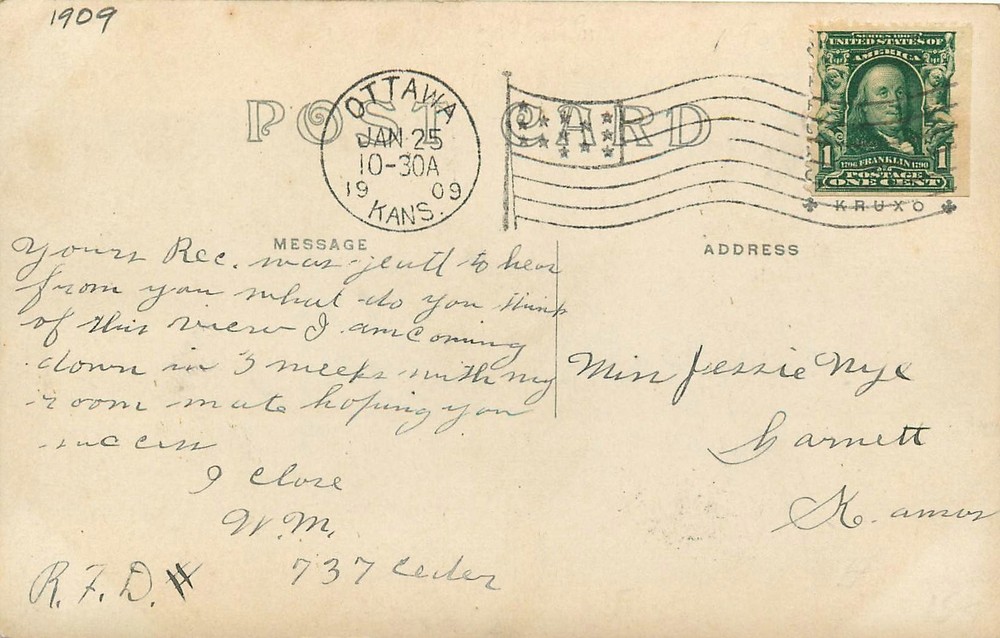 1909
POST CARD
OTTAWA
JAN 25
10-30A
19 09
KANS.
SERIES 1902
UNITED STATES OF
AMERICA
1 1706 FRANKLIN 1790 1
POSTAGE
ONE CENT
KRUXO
MESSAGE
ADDRESS
Yours Rec. was to hear
from you what do you think
of this view I am coming
down in 3 weeks with my
room mate hoping you
success
I close
W.M.
737 Ceder
R.F.D.
Miss Jessie Nye
Garnett
Kansas